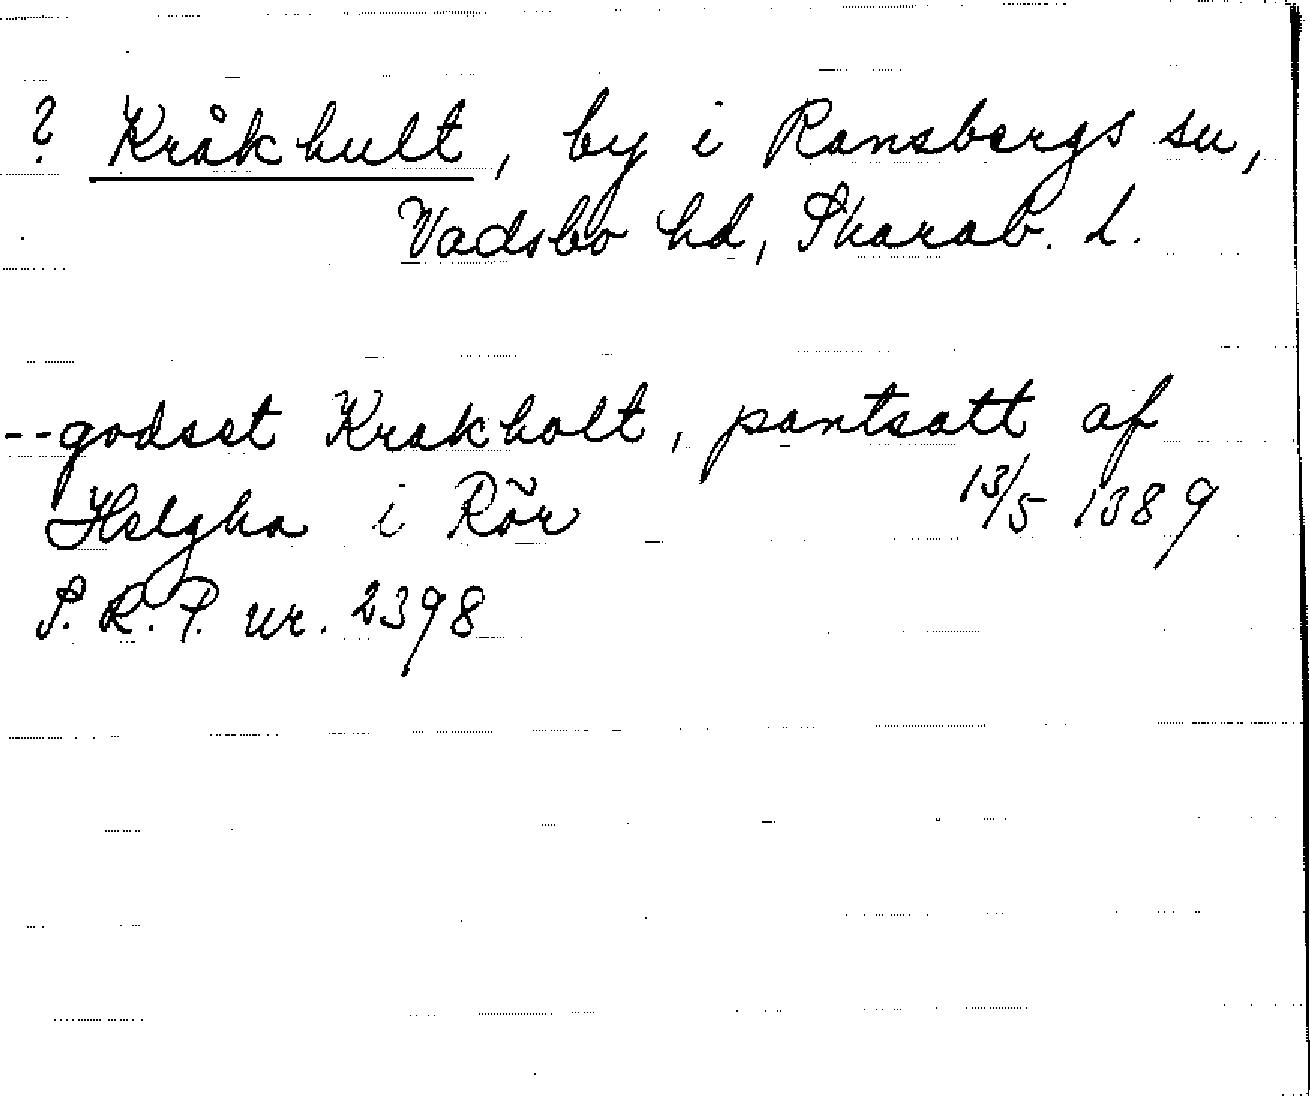 ? Kråkhult, by i Ransbergs sn,
Vadsbo hd, Skarab. l.
--godset Krakholt, pantsatt af
Helgha i Rör 13/5 1389
S. R. P. nr. 2398